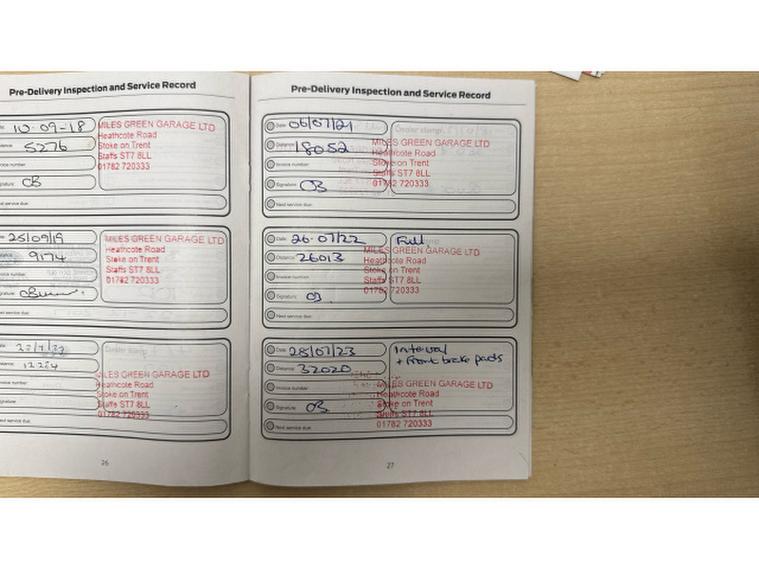 Pre-Delivery Inspection and Service Record
10-09-18
MILES GREEN GARAGE LTD
Heathcote Road
5276
Stoke on Trent
Staffs ST7 8LL
Invoice number
01782 720333
Signature
CB
Next service due:
25/09/19
MILES GREEN GARAGE LTD
Heathcote Road
9174
Stoke on Trent
Staffs ST7 8LL
Invoice number
01782 720333
Signature
Next service due:
Dealer stamp
MILES GREEN GARAGE LTD
Heathcote Road
Invoice number
Stoke on Trent
Staffs ST7 8LL
Signature
01782 720333
Next service due:
26
Pre-Delivery Inspection and Service Record
Date 06/07/21
Dealer stamp
Distance 18052
MILES GREEN GARAGE LTD
Heathcote Road
Invoice number
Stoke on Trent
Staffs ST7 8LL
Signature CB
01782 720333
Next service due:
Date 26.07/22
Full
Distance 26013
MILES GREEN GARAGE LTD
Heathcote Road
Invoice number
Stoke on Trent
Staffs ST7 8LL
Signature CB
01782 720333
Next service due:
Date 28/07/23
Interval
+ Front brake pads
Distance 32020
MILES GREEN GARAGE LTD
Invoice number
Heathcote Road
Stoke on Trent
Signature CB
Staffs ST7 8LL
01782 720333
Next service due:
27